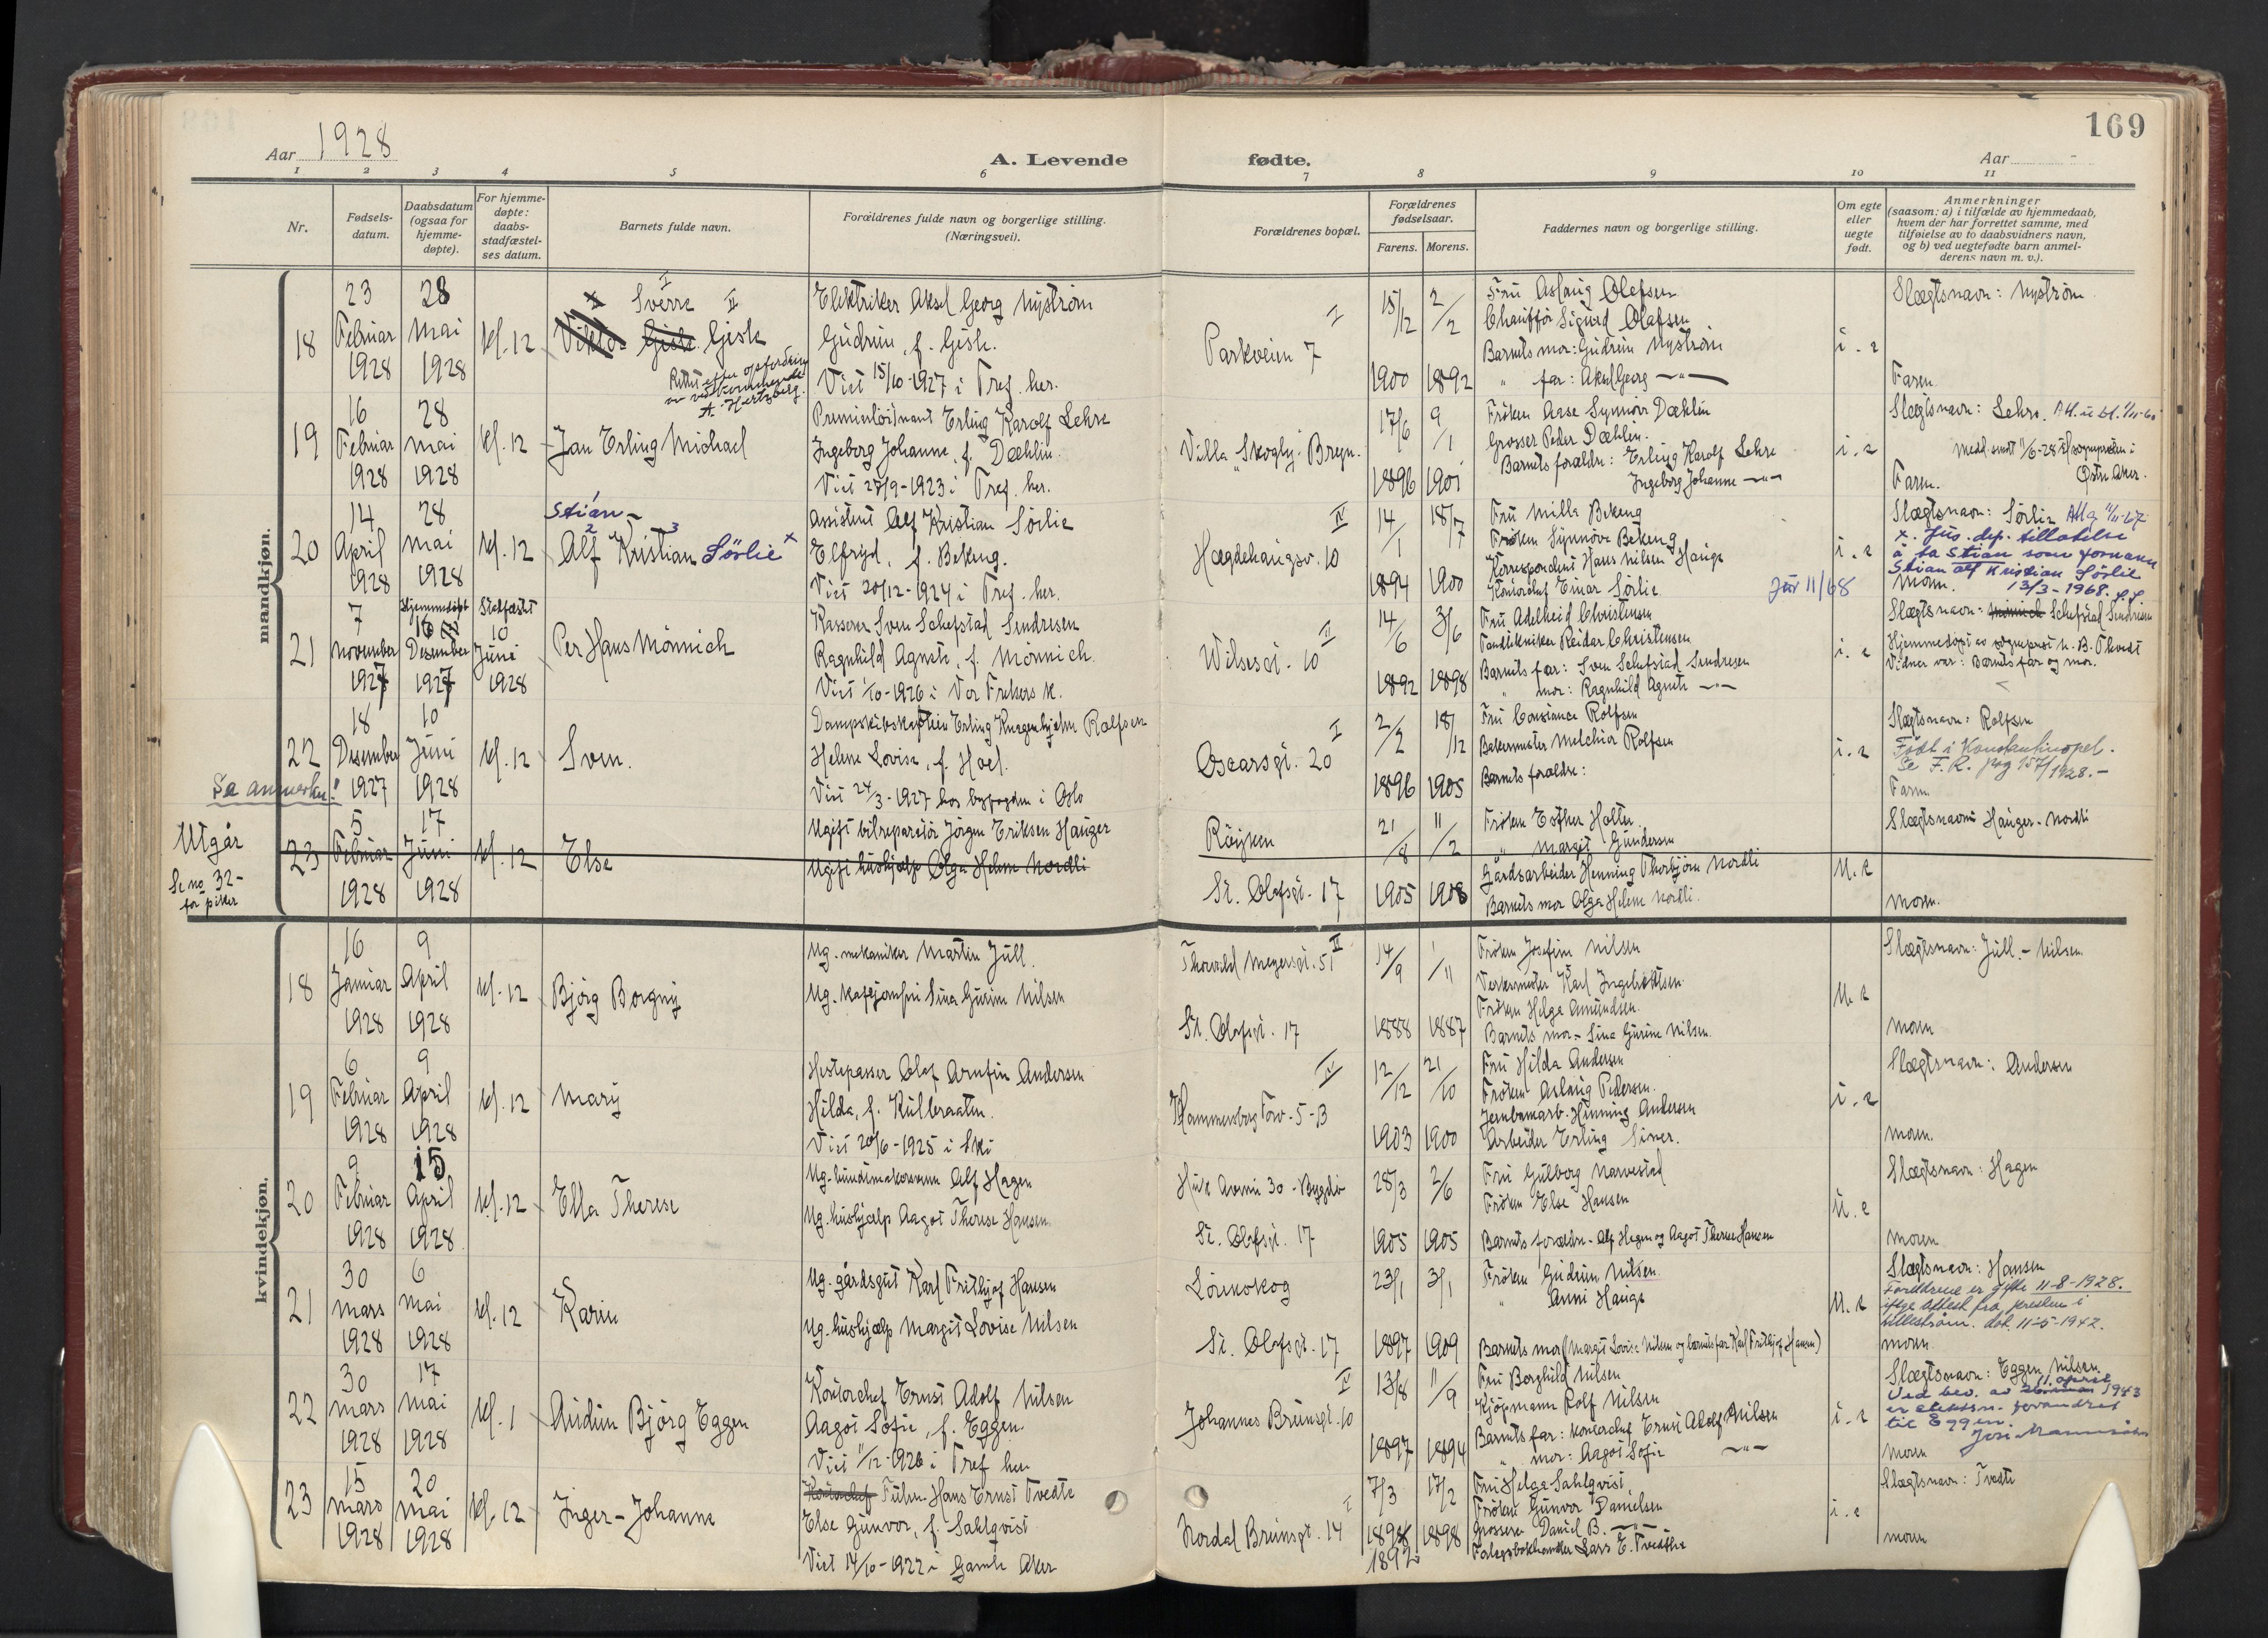 169
Aar 1928
A. Levende fødte.
Aar
1 2 3 4 5 6 7 8 9 10 11
Nr.
Fødsels-
datum.
Daabsdatum
(ogsaa for
hjemme-
døpte).
For hjemme-
døpte:
daabs-
stadfæstel-
ses datum.
Barnets fulde navn.
Forældrenes fulde navn og borgerlige stilling.
(Næringsvei).
Forældrenes bopæl.
Forældrenes
fødselsaar.
Farens. Morens.
Faddernes navn og borgerlige stilling.
Om egte
eller
uegte
født.
Anmerkninger
(saasom: a) i tilfælde av hjemmedaab,
hvem der har forrettet samme, med
tilføielse av to daabsvidners navn,
og b) ved uegtefødte barn anmel-
derens navn m. v.).
mandkjøn.
18
23 Februar 1928
28 Mai 1928
Kl. 12
I Sverre II
Gisle Gisle
Elektriker Aksel Georg Nyström
Gudrun, f. Gisle.
Viet 15/10-1927 i Tref. her.
I
Parkveien 7
15/12 1900
2/2 1892
Fru Aslaug Olafsen
Chauffør Sigurd Olafsen
Barnets mor: Gudrun Nyström
" far: Aksel Georg —"—
i. e
Slægtsnavn: Nyström
Faren.
19
16 Februar 1928
28 Mai 1928
Kl. 12
Jan Erling Michael
Premierlöitnant Erling Karolf Lehre
Ingeborg Johanne, f. Dæhlin.
Viet 27/9-1923 i Tref. her.
Villa "Skogly" Bryn.
17/6 1896
9/1 1901
Frøken Aase Synnøv Dæhlin
Grosser Peder Dæhlin.
Barnets forældre: Erling Karolf Lehre
Ingeborg Johanne —"—
i. e
Slægtsnavn: Lehre.
Medd. sendt 11/6-28 til sognepresten i
Østre Aker.
Faren.
20
14 April 1928
28 Mai 1928
Kl. 12
Stian 1
2 3
Alf Kristian Sörlie x
Assistent Alf Kristian Sörlie
Elfryd, f. Bekeng.
Viet 20/12-1924 i Tref. her.
IV
Hægdehaugsv. 10
14/1 1894
18/7 1900
Fru Milla Bekeng
Frøken Synnøve Bekeng
Korrespondent Hans Nilsen Hauge
Kontorchef Einar Sørlie
Jnr 11/68
i. e
Slægtsnavn: Sørlie
x. Jus. dep. tillatelse
å ta Stian som fornavn
Stian Alf Kristian Sörlie
13/3-1968.
Moren.
21
7 November 1927
Hjemmedøpt 16 Desember 1927
Stadfæstet 10 Juni 1928
Per Hans Mønnich
Kasserer Sven Schefstad Sendresen
Ragnhild Agnete, f. Mønnich.
Viet 1/10-1926 i Vor Frelsers K.
II
Wilsesgt. 10
14/6 1892
3/6 1898
Fru Adelheid Christensen
Tandtekniker Reidar Christensen
Barnets far: Sven Schefstad Sendresen
" mor: Ragnhild Agnete —"—
i. e
Slægtsnavn: Mønnich Schefstad Sendresen
Hjemmedøpt av sogneprest N. B. Thvedt
Vidner var: Barnets far og mor.
22
Se anmerkn!
18 Desember 1927
10 Juni 1928
Kl. 12
Sven.
Dampskibskaptein Erling Knagenhjelm Rolfsen
Helene Lovise, f. Hoel.
Viet 24/3-1927 hos byfogden i Oslo
I
Oscarsgt. 20
2/2 1896
18/12 1905
Fru Constance Rolfsen
Bakermester Melchior Rolfsen
Barnets forældre:
i. e
Slægtsnavn: Rolfsen
Født i Konstantinopel.
Se F. R. pag 157/1928.-
Faren
Utgår
Se no 32-
for piker
23
5 Februar 1928
17 Juni 1928
Kl. 12
Else
Ugift bilreparatör Jörgen Eriksen Hauger
Ugift hushjælp Olga Helene Nordli
Röyken
St. Olafsgt. 17
21/8 1905
11/2 1908
Frøken Esther Holter.
" Margit Gundersen
Gårdsarbeider Henning Thorbjørn Nordli
Barnets mor Olga Helene Nordli.
U. e
Slægtsnavn: Hauger-Nordli
Moren.
kvindekjøn.
18
16 Januar 1928
9 April 1928
Kl. 12
Bjørg Borgny
Ug. mekaniker Martin Jull.
Ug. kafejomfru Sina Gurine Nilsen
II
Thorvald Meyersgt. 51
St. Olafsgt. 17
14/9 1888
1/11 1887
Frøken Josefine Nilsen
Verksmester Karl Ingebretsen.
Frøken Helga Amundsen.
Barnets mor - Sina Gurine Nilsen.
U. e
Slægtsnavn: Jull.- Nilsen.
Moren
19
6 Februar 1928
9 April 1928
Kl. 12
Mary
Hestepasser Olaf Arnfin Andersen
Hilda, f. Kulleraaten.
Viet 20/6-1925 i Ski
IV
Hammersborg Torv-5-B
12/12 1903
21/10 1900
Fru Hilda Andersen
Frøken Aslaug Pedersen.
Jernbanearb. Henning Andersen
Arbeider Erling Siner.
i. e
Slægtsnavn: Andersen
Moren.
20
9 Februar 1928
15 April 1928
Kl. 12
Ella Therese
Ug. buntmakersvenn Alf Hagen
Ug. hushjælp Aagot Therese Hansen.
Huk Aveni 30 - Bygdö
St. Olafsgt. 17
28/3 1905
2/6 1905
Fru Gulborg Narvestad
Frøken Else Hansen
Barnets forældre - Alf Hagen og Aagot Therese Hansen
U. e
Slægtsnavn: Hagen
Moren
21
30 Mars 1928
6 Mai 1928
Kl. 12
Karin
Ug. gårdsgut Karl Frithjof Hansen
Ug. hushjælp Margit Lovise Nilsen
Lørenskog
St. Olafsgt. 17
23/1 1897
3/1 1909
Frøken Gudrun Nilsen.
" Anni Hauge
Barnets mor (Margit Lovise Nilsen og barnets far Karl Frithjof Hansen)
U. e
Slægtsnavn: Hansen
Foreldrene er gifte 11-8-1928.
ifølge attest fra presten i
Lillestrøm. dat. 11-5-1942.
Moren.
22
30 Mars 1928
17 Mai 1928
Kl. 1
Audun Bjørg Eggen
Kontorchef Ernst Adolf Nilsen
Aagot Sofie, f. Eggen.
Viet 11/12-1926 i Tref her
IV
Johannes Brunsgt. 10
13/8 1897
11/9 1894
Fru Borghild Nilsen
Kjøpmann Rolf Nilsen
Barnets far: Kontorchef Ernst Adolf Nilsen
" mor: Aagot Sofie —"—
i. e
Slægtsnavn: Eggen Nilsen
Ved bev. av 11. april 1943
er slektsn. forandret
til Eggen.
Moren
23
15 Mars 1928
20 Mai 1928
Kl. 12
Inger-Johanne
Kontorchef Fullm. Hans Ernst Tvedte
Else Gunvor, f. Sahlqvist
Viet 14/10-1922 i Gamle Aker
I
Nordal Brunsgt. 14
7/3 1898 1892
17/2 1898
Fru Helga Sahlqvist,
Frøken Gunvor Danielsen
Grosserer Daniel B. —"—
Forlagsbokhandler Lars E. Tvedte
i. e
Slægtsnavn: Tvedte
Moren